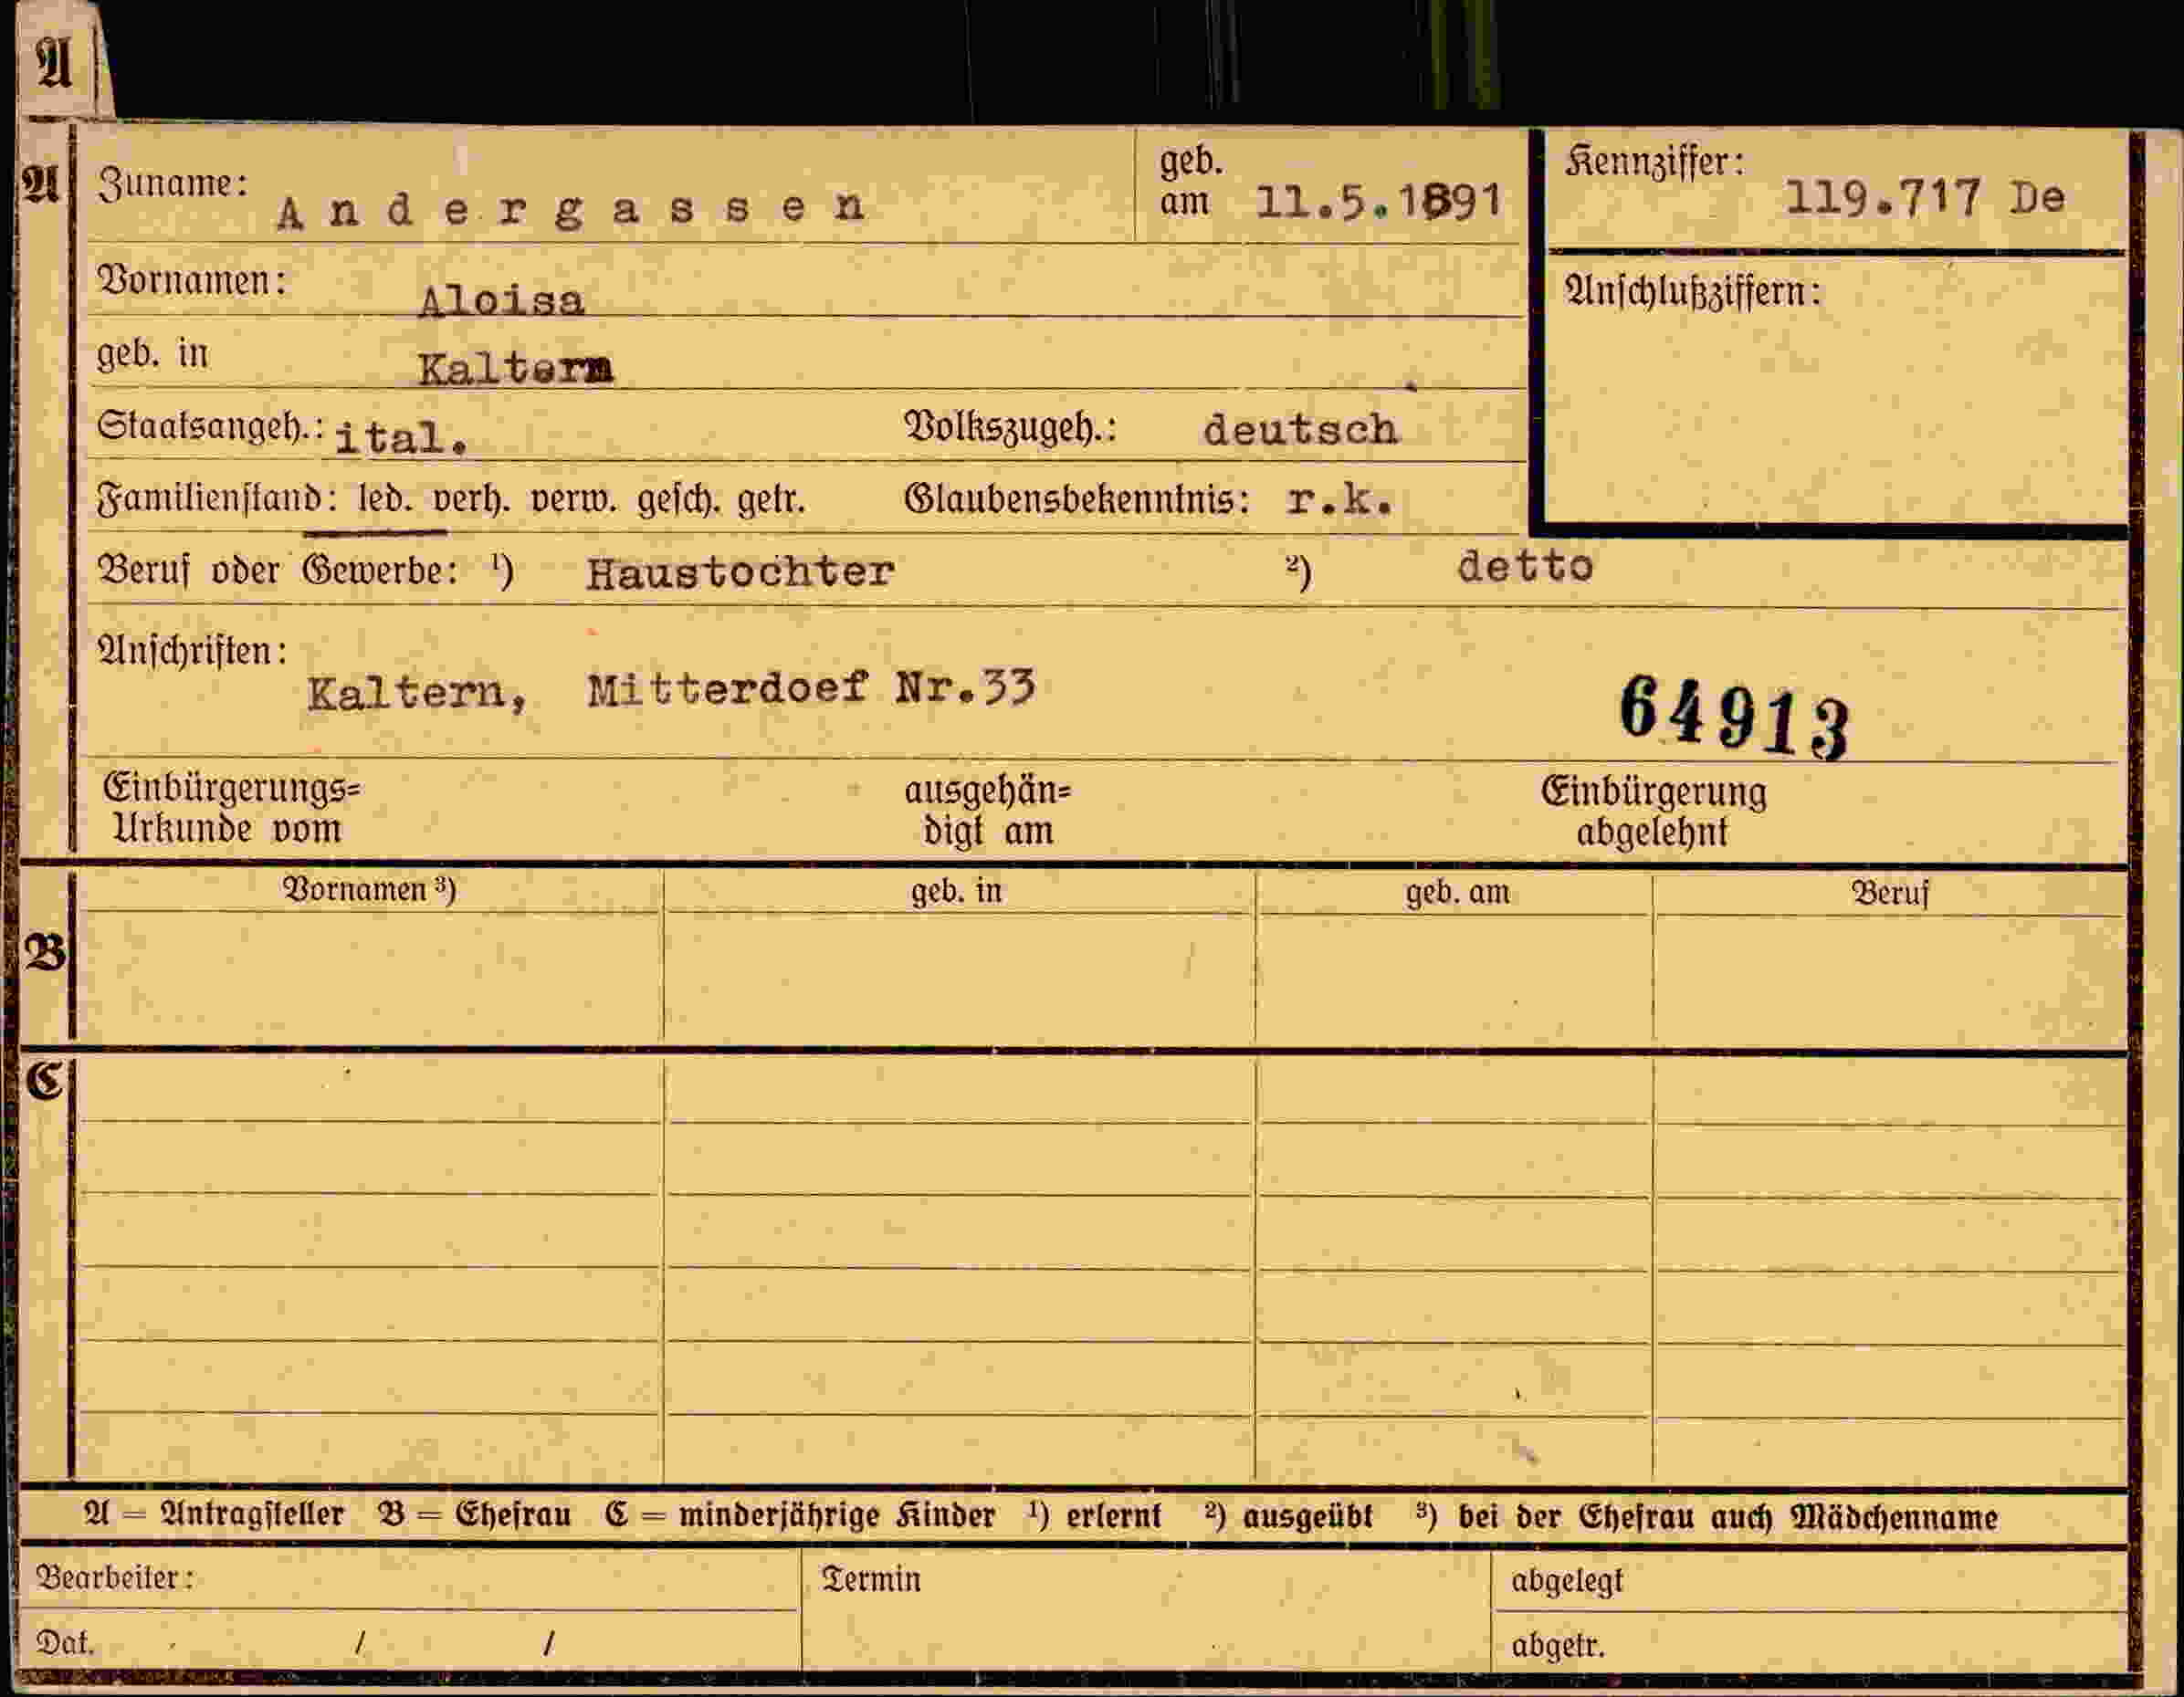 A
A
Zuname: Andergassen geb. am 11.5.1891 Kennziffer: 119.717 De
Vornamen: Aloisa Anschlußziffern:
geb. in Kaltern
Staatsangeh.: ital. Volkszugeh.: deutsch
Familienstand: led. verh. verw. gesch. getr. Glaubensbekenntnis: r.k.
Beruf oder Gewerbe: ¹) Haustochter ²) detto
Anschriften:
Kaltern, Mitterdoef Nr.33 64913
Einbürgerungs= ausgehän= Einbürgerung
Urkunde vom digt am abgelehnt
Vornamen ³) geb. in geb. am Beruf
B
C
A = Antragsteller B = Ehefrau C = minderjährige Kinder ¹) erlernt ²) ausgeübt ³) bei der Ehefrau auch Mädchenname
Bearbeiter: Termin abgelegt
Dat. / / abgetr.